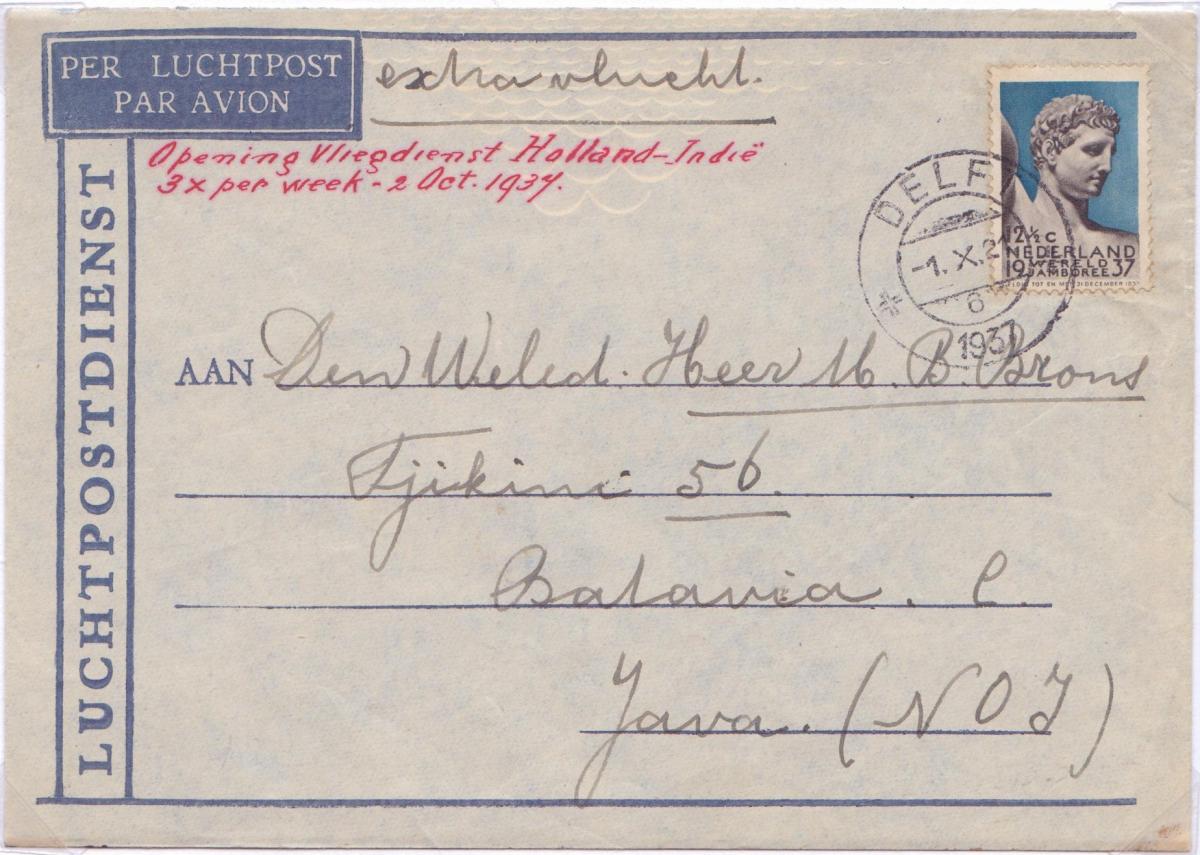 PER LUCHTPOST
PAR AVION
extra vlucht.
Opening Vliegdienst Holland-Indië
3x per week - 2 Oct. 1937.
LUCHTPOSTDIENST
DELF
-1.X.2
6
1937
12½ C
NEDERLAND
19 WERELD 37
JAMBOREE
TOT EN MET 31 DECEMBER
AAN Den Weled. Heer M. B. Brons
Tjikini 56.
Batavia. C.
Java. (NOI)